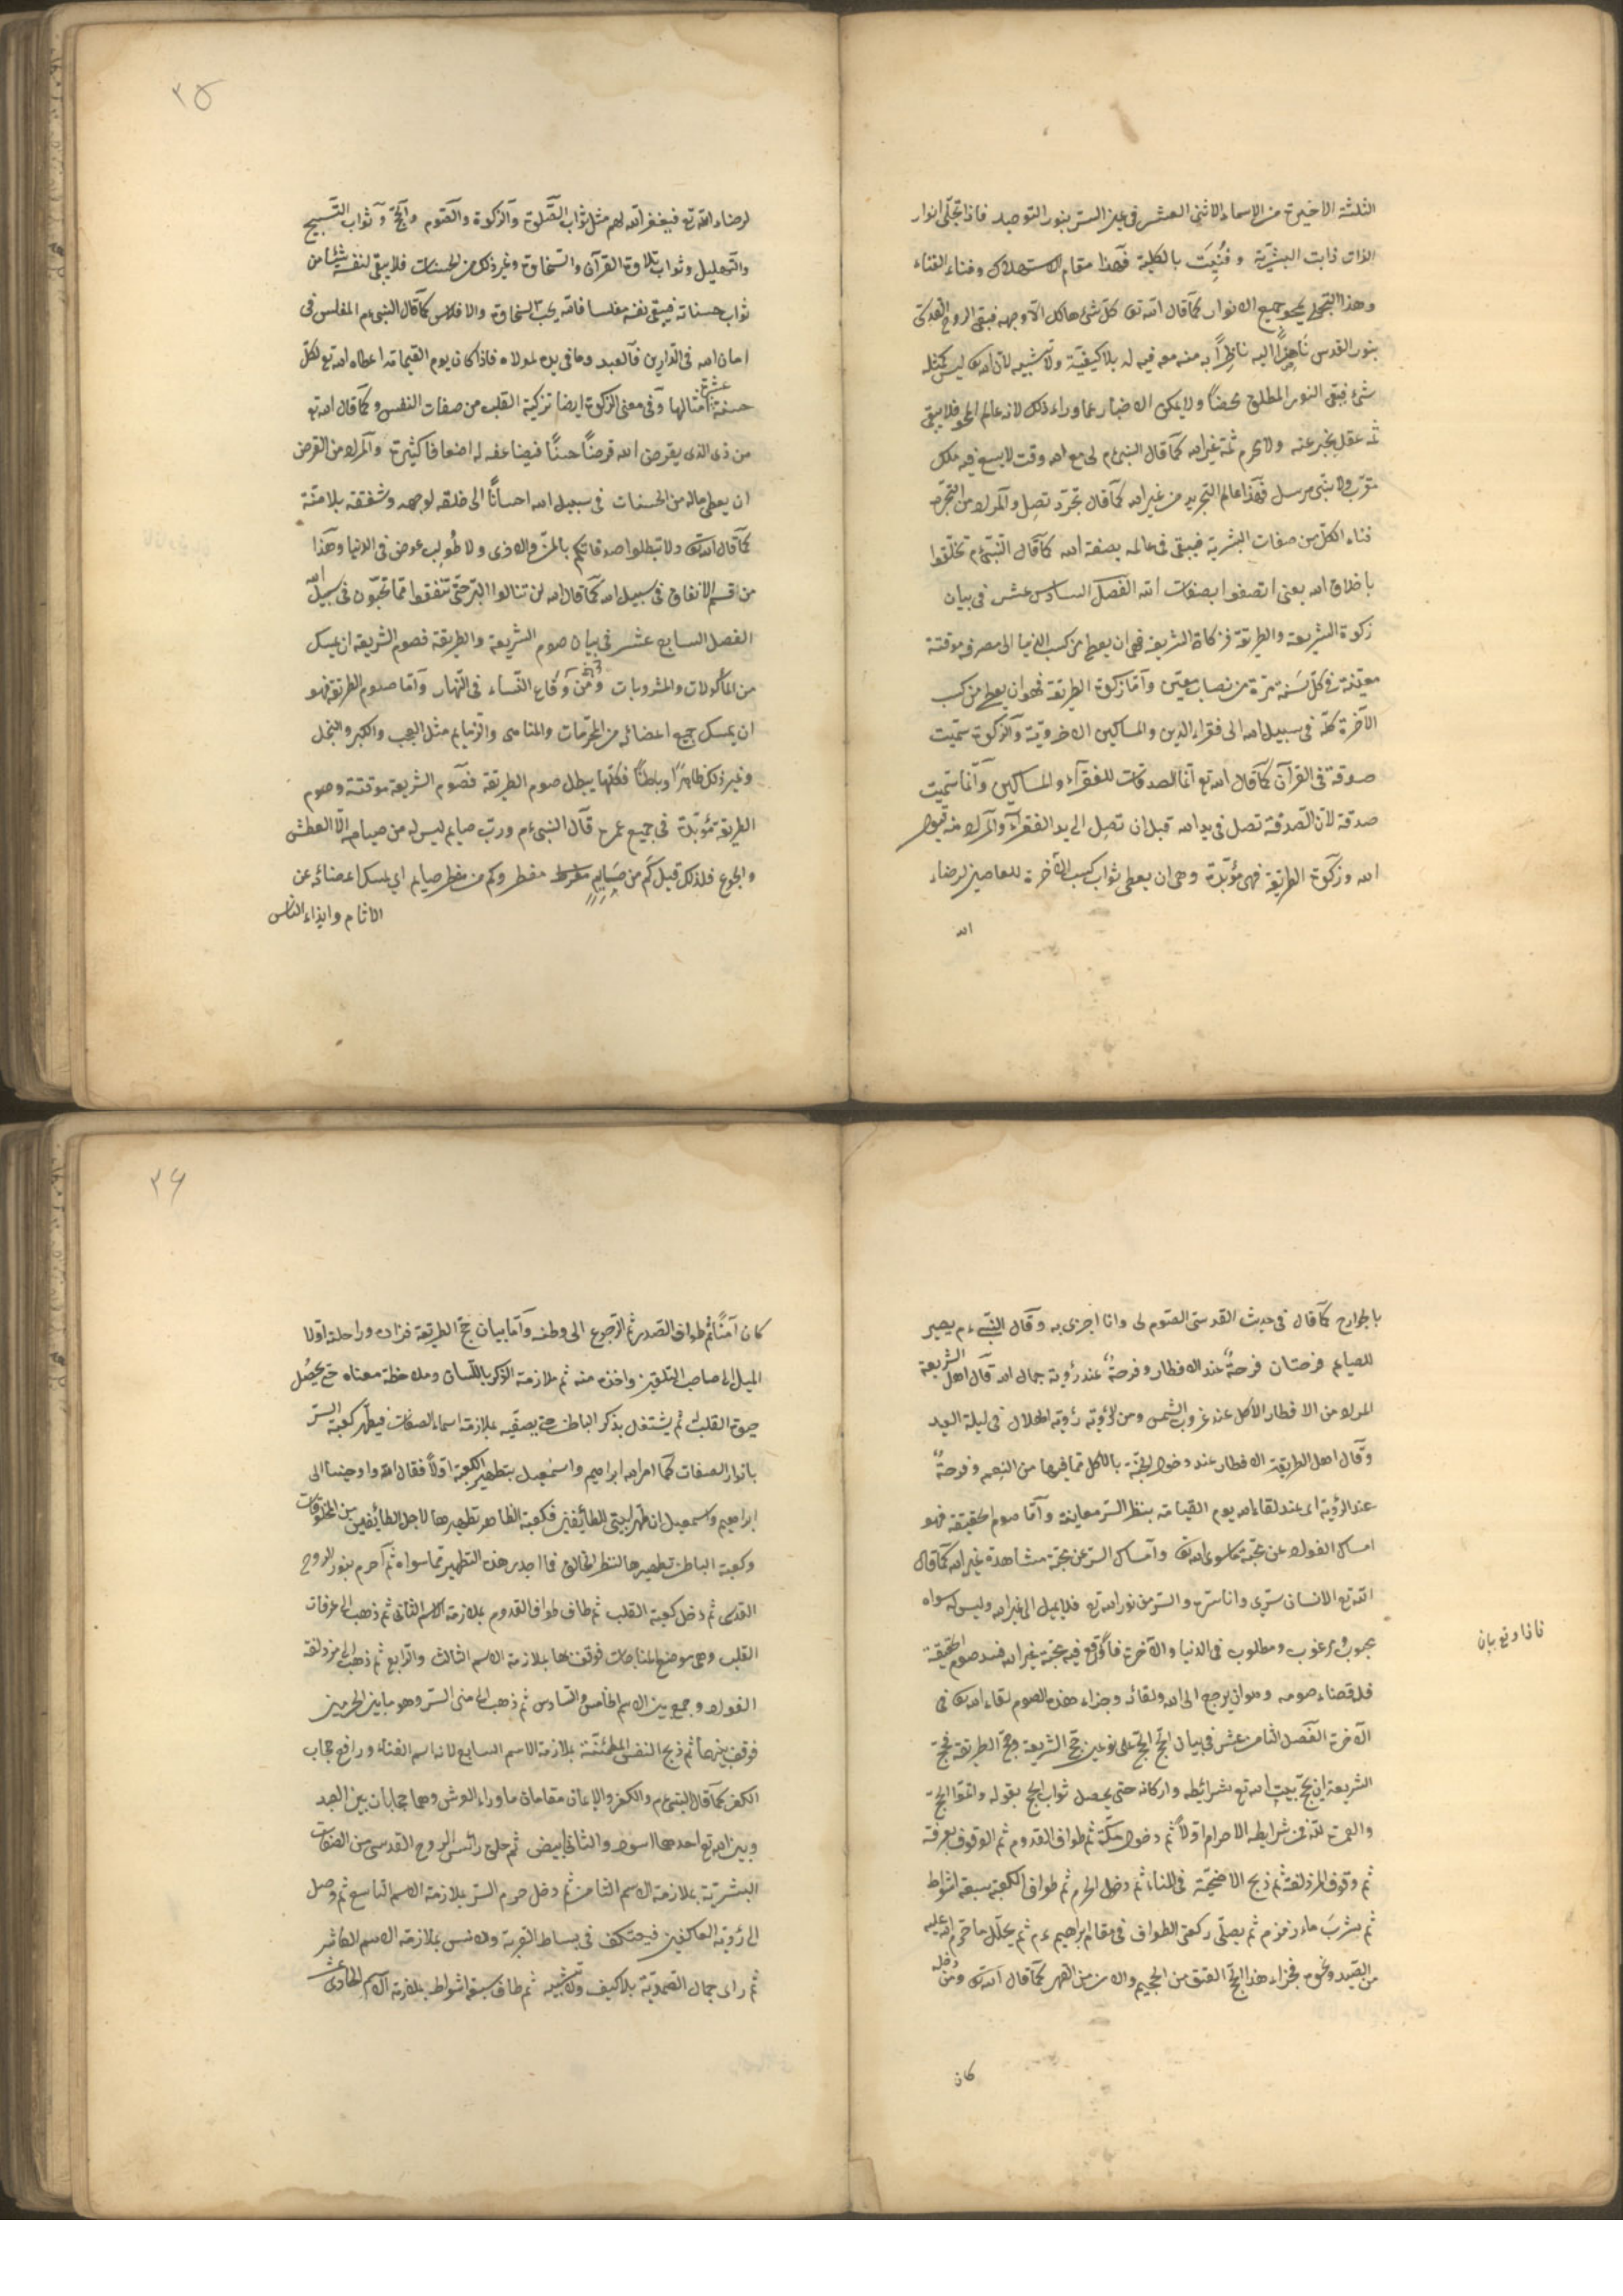 الثلثة الاخيرة من الاسماء الاثنى العشر في عين السرّ بنور التوحيد فاذا تجلّى انوار
الذات ذابت البشريّة وفُنِيَت بالكلية فهذا مقام الاستهلاك وفناء الفناء
وهذا التجلى يمحو جميع الانوار كما قال الله تعا كل شئ هالك الّا وجهه فبقى الروح القدسى
بنور القدس ناظرًا اليه ناظرًا به منه معه فيه له بلا كيفيّة ولا تشبيه لان الله تعا ليس كمثله
شئ فبقى النور المطلق محضًا ولا يمكن الاخبار عما وراء ذلك لانه عالم المحو فلا يبقى
ثمه عقل يخبر عنه ولا محرم ثمة غير الله كما قال النبى ءم لى مع الله وقت لا يسع فيه ملك
مقرّب ولا نبى مرسل فهذا عالم التجريد من غير الله كما قال تجرّد تصل والمراد من التجرّد
فناء الكلّ من صفات البشرية فيبقى في عالمه بصفة الله كما قال النبى ءم تخلّقوا
باخلاق الله يعنى اتصفوا بصفات الله الفصل السادس عشر في بيان
زكوة الشريعة والطريقة فزكاة الشريعة فهى ان يعطى من كسب الدنيا الى مصرفه موقتة
معينة في كلّ سَنة مرّة من نصاب معيّن وامّا زكوة الطريقة فهو ان يعطى من كسب
الآخرة كلّه في سبيل الله الى فقراء الدين والمساكين الاخروية والزكوة سمّيت
صدقة في القرآن كما قال الله تع انّما الصدقات للفقرآء والمساكين وانّما سمّيت
صدقة لانّ الصّدقة تصل في يد الله قبل ان تصل الى يد الفقرآء والمراد منه قبول
الله وزكوة الطريقة فهى مؤبّدة وهى ان يعطى ثواب كسب الآخرة للعاصين لرضاء
الله
٢٥
لرضاء الله تع فيغفر الله لهم مثل ثواب الصّلوة والزكوة والصّوم والحجّ وثواب التّسبيح
والتّهليل وثواب تلاوة القرآن والسّخاوة وغير ذلك من الحسنات فلا يبقى لنفسه شيئًا من
ثواب حسناته فيبقى نفسه مفلسا فالله يحبّ السخاوة والافلاس كما قال النبى ءم المفلس في
امان الله في الدارين فالعبد وما في يده لمولاه فاذا كان يوم القيمة اعطاه الله تع لكلّ
حسنة عشر امثالها وفى معنى الزكوة ايضا تزكية القلب من صفات النفس وكما قال الله تع
من ذى الذى يقرض الله قرضًا حسنًا فيضاعفه له اضعافا كثيرة والمراد من القرض
ان يعطى ماله من الحسنات في سبيل الله احسانًا الى خلقه لوجهه وشفقة بلا منّة
كما قال الله تعا ولا تبطلوا صدقاتكم بالمنّ والاذى ولا طُولِب عوض في الدنيا وهذا
من اقسم الانفاق في سبيل الله كما قال الله لن تنالوا البرّ حتى تنفقوا ممّا تحبّون في سبيل الله
الفصل السابع عشر في بيان صوم الشريعة والطريقة فصوم الشريعة ان يمسك
من المأكولات والمشروبات ومن وقاع النّساء في النّهار وامّا صوم الطريقة فهو
ان يمسك جميع اعضائه من المحرّمات والمناهى والذمايم مثل العجب والكبر والبخل
وغير ذلك ظاهرًا وباطنًا فكلّها يبطل صوم الطريقة فصوم الشريعة موقتة وصوم
الطريقة مؤبّدة في جميع عمره قال النبى ءم وربّ صايم ليس له من صيامه الّا العطش
والجوع فلذلك قيل كم من صَايِمٍ مفطر وكم من مفطر صايم اى يمسك اعضائه عن
الاثام وايذاء الناس
بالجوارح كما قال في حديث القدسى الصّوم لى وانا اجزى به وقال النّبى ءم يصير
للصايم فرحتان فرحةٌ عند الافطار وفرحةٌ عند رؤية جمال الله قال اهل الشريعة
المراد من الافطار الأكل عند غروب الشمس ومن الرُؤية رؤية الهلال في ليلة العيد
وقال اهل الطريقة الافطار عند دخول الجنّة بالأكل ممّا فيها من النعيم وفرحةٌ
عند الرؤية اى عند لقاء الله يوم القيامة بنظر السرّ معاينة وامّا صوم الحقيقة فهو
امساك الفؤاد عن محبّة ما سوى الله تعا وامساك السرّ عن محبّة مشاهدة غير الله كما قال
الله تع الانسان سرّى وانا سرّه والسّر من نور الله تع فلا يميل الى غير الله وليس له سواه
محبوب ومرغوب ومطلوب في الدنيا والآخرة فاذا وقع فيه محبّة غير الله فسد صوم الحقيقة
فله قضاء صومه وهو ان يرجع الى الله ولقائه وجزاء هذه الصوم لقاء الله تعا في
الآخرة الفصل الثامن عشر في بيان الحجّ الحجّ على نوعين حجّ الشريعة وحجّ الطريقة فحجّ
الشريعة ان يحجّ بيت الله تع بشرائطه واركانه حتى يحصل ثواب الحج بقوله واتمّوا الحجّ
والعمرة لله فمن شرايطه الاحرام اولًا ثم دخول مكّة ثم طواف القدوم ثم الوقوف بعرفة
ثم وقوف المزدلفة ثم ذبح الاضحيّة في المناء ثم دخول الحرم ثم طواف الكعبة سبعة اشواط
ثم يشرب ماء زمزم ثم يصلّى ركعتى الطواف في مقام ابراهيم ءم ثم يحلّل ما حرّم الله عليه
من الصّيد ونحوه فجزاء هذا الحجّ العتق من الجحيم والامن من القهر كما قال الله تعا ومن دخله
كان
٢۶
كان آمنًا ثم طواف الصدر ثم الرّجوع الى وطنه وامّا بيان حجّ الطريقة فزاده وراحلته اوّلا
الميل الى صاحب التلقين واخذه منه ثم ملازمة الذكر باللّسان وملاحظة معناه حتى يحصُل
حيوة القلب ثم يشتغل بذكر الباطن حتى يصفّيه بملازمة اسماء الصفات فيظهر كعبة السّرّ
بانوار الصفات كما امر الله ابراهيم واسمعيل بتطهير الكعبة اولًا فقال الله واوحينا الى
ابراهيم واسمعيل ان طهّرا بيتى للطائفين فكعبة الظاهر تطهيرها لاجل الطائفين من المخلوقات
وكعبة الباطن تطهيرها لنظر الخالق فما اجدر هذه التطهير ممّا سواه ثم احرم بنور الروح
القدسى ثم دخل كعبة القلب ثم طاف طواف القدوم بملازمة الاسم الثانى ثم ذهب الى عرفات
القلب وهى موضع المناجات فوقف بها بملازمة الاسم الثالث والرّابع ثم ذهب الى مزدلفة
الفؤاد وجمع بين الاسم الخامس والسّادس ثم ذهب الى منى السرّ وهو ما بين الحرمين
فوقف بينهما ثم ذبح النفس المطمئنّة بملازمة الاسم السابع لانه اسم الفناء ورافع حجاب
الكفر كما قال النبى ءم والكفر والايمان مقامان ما وراء العرش وهما حجابان بين العبد
وبين الله تع احدهما اسود والثانى ابيض ثم حلق رائس الروح القدسى من الصّفات
البشريّة بملازمة الاسم الثامن ثم دخل حرم السرّ بملازمة الاسم التاسع ثم وصل
الى رؤية العاكفين فيعتكف في بساط القربة والانس بملازمة الاسم العاشر
ثم راى جمال الصّمديّة بلا كيف ولا تشبيه ثم طاف سبعة اشواط بملازمة الاسم الحادى عشر